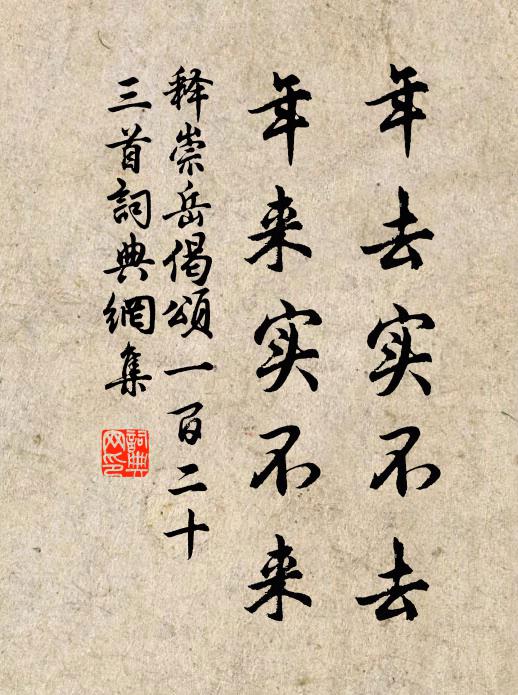 年去实不去
年来实不来
释崇岳偈頌一百二十
三首詞典網集
詞典
网印